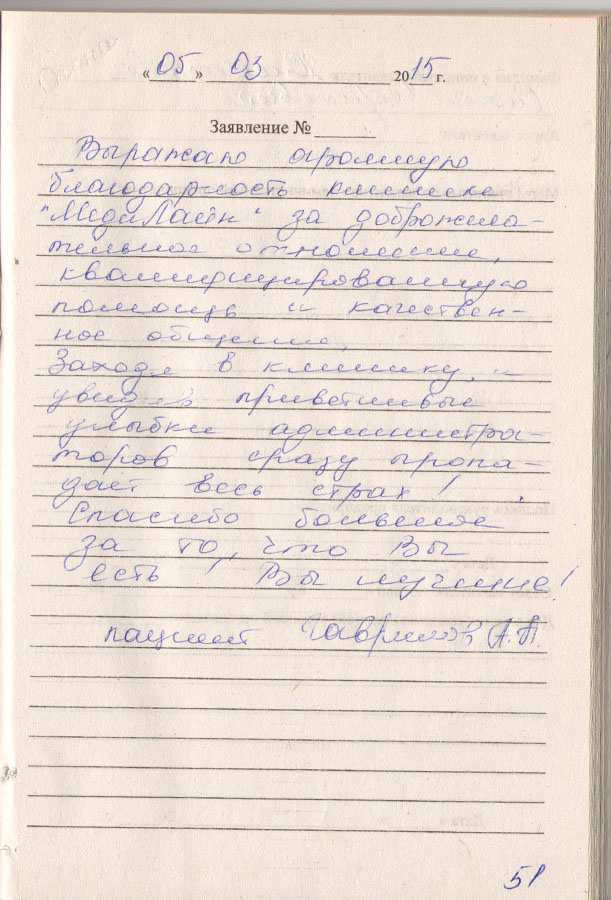 «05» 03 2015 г.
Заявление №
Выражаю огромную
благодарность клинике
"МедиЛайн" за доброжела-
тельное отношение,
квалифицированную
помощь и качествен-
ное общение.
Заходя в клинику, и
увидев приветливые
улыбки администра-
торов сразу пропа-
дает весь страх!
Спасибо большое
за то, что Вы
есть! Вы лучшие!
пациент Гаврилов А.П.
51